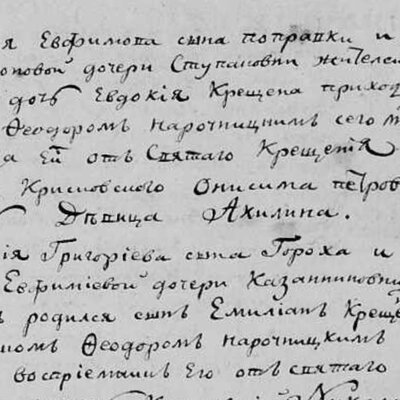 я Евфимова сына поправки и
оповой дочери Ступановни жителей
дочь Евдокія Крещена приход
Феодоромъ нарочницкимъ сего м
а Ей отъ Святаго Крещенія
Крисновского Онисима петров
Дѣвица Акилина.
ія Григоріева сына Гороха и
Евфиміевой дочери Казанниповн
ъ родился сынъ Емиліанъ Креще
номъ Феодоромъ нарочицкимъ
воспріемникъ Его отъ святаго